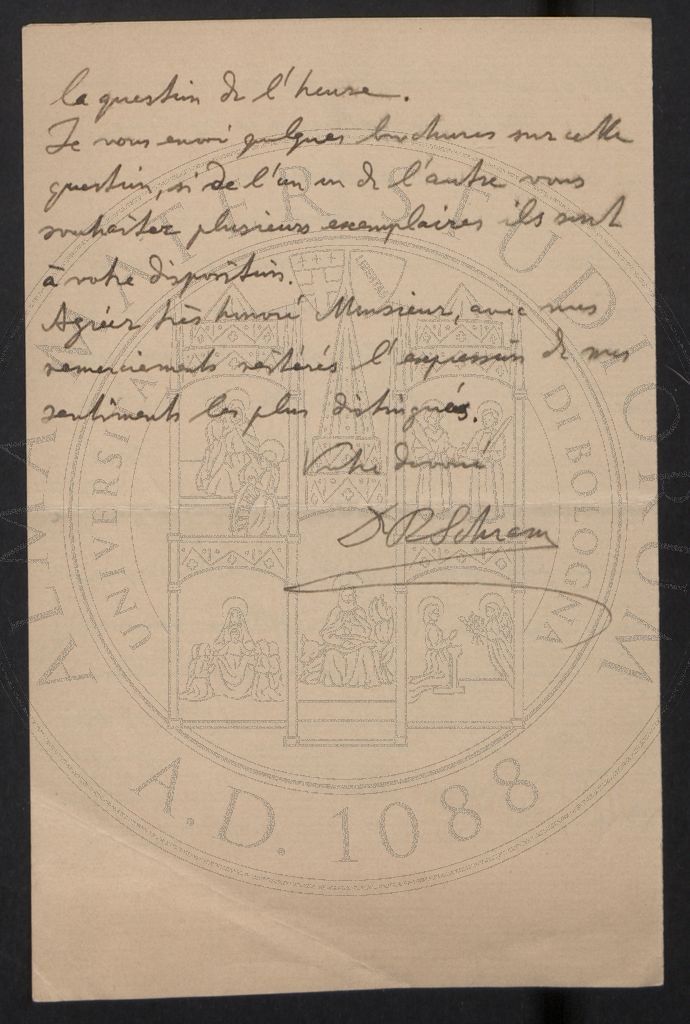 la question de l'heure.
Je vous envoi quelques brochures sur cette
question, si de l'un ou de l'autre vous
souhaitez plusieurs exemplaires ils sont
à votre disposition.
Agréez très honoré Monsieur, avec mes
remerciements réitérés l'expression de mes
sentiments les plus distingués.
Votre dévoué
Dr R Schram
ALMA MATER STUDIORUM
UNIVERSITÀ DI BOLOGNA
A.D. 1088